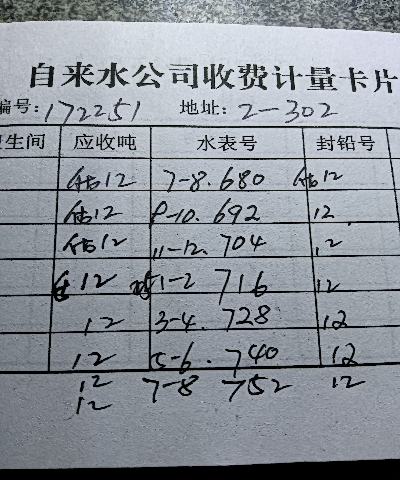 自来水公司收费计量卡片
编号:172251 地址:2-302
生间 应收吨 水表号 封铅号
估12 7-8.680 估12
估12 9-10.692 12.
估12 11-12.704 12
估12 1-2 716 12
12 3-4.728 12
12 5-6.740 12
12 7-8 752 12
12